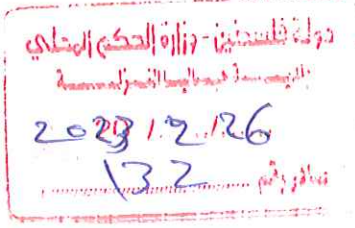 دولة فلسطين - وزارة الحكم المحلي
2023/2/26
صادر رقم 132